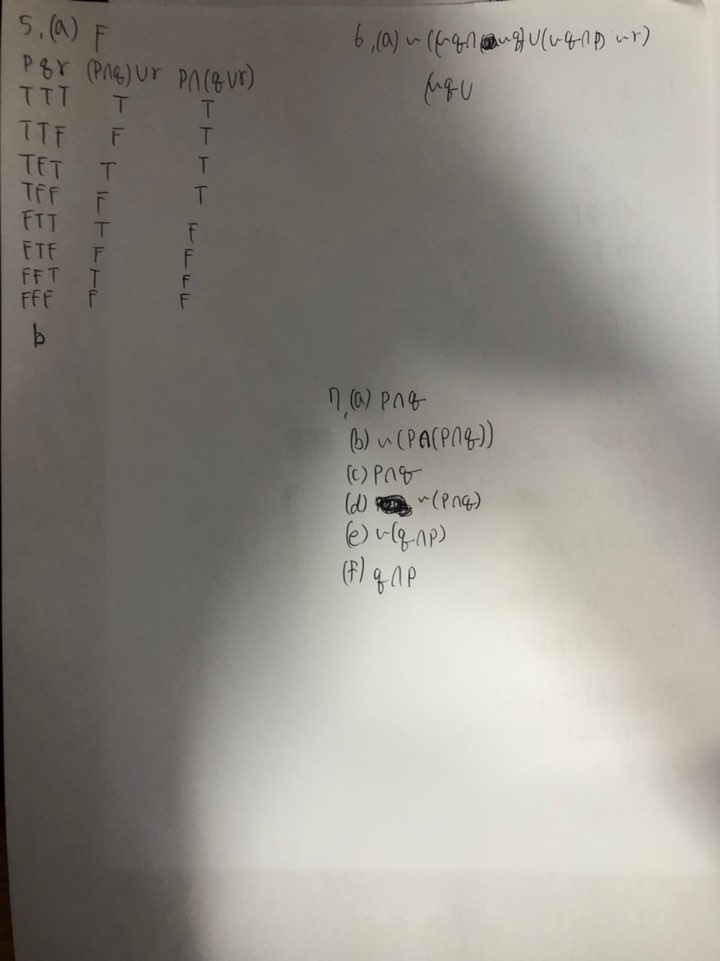 5,(a) F
P q r (P∩q)∪r P∩(q∪r)
TTT T T
TTF F T
TFT T T
TFF F T
FTT T F
FTF F F
FFT T F
FFF F F
b
6,(a) ~((~q∩~q)∪(~q∩p) ~r)
(~q∪
7,(a) P∩q
(b) ~(P∩(P∩q))
(c) P∩q
(d) ~(P∩q)
(e) ~(q∩p)
(f) q∩p